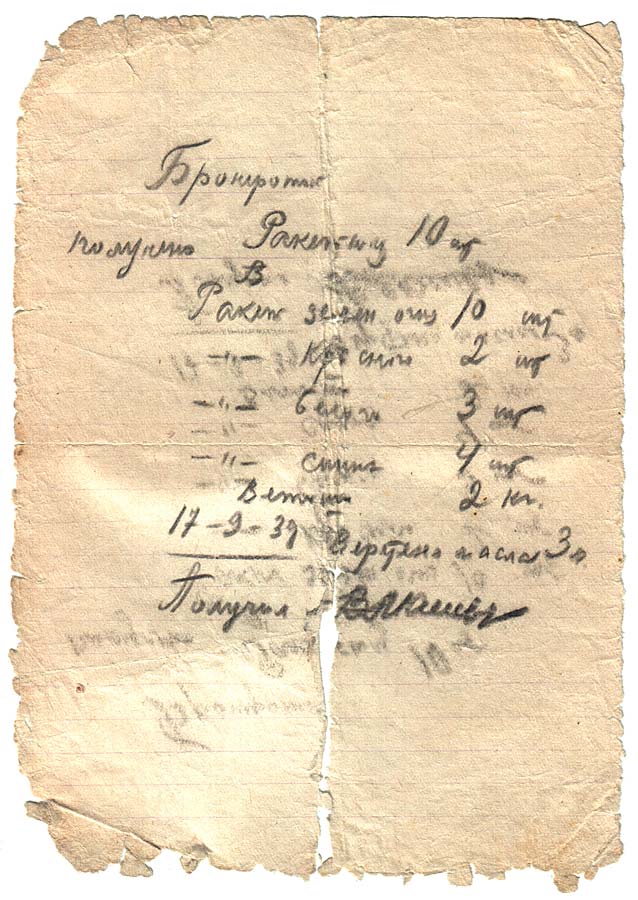 Бронрота
получено Ракетниц 10 шт
В
Ракет зелен огня 10 шт
—"— Красного 2 шт
—"— белого 3 шт
—"— синих 4 шт
Ветоши 2 кг.
17-9-39 Веретено масла 3
Получил